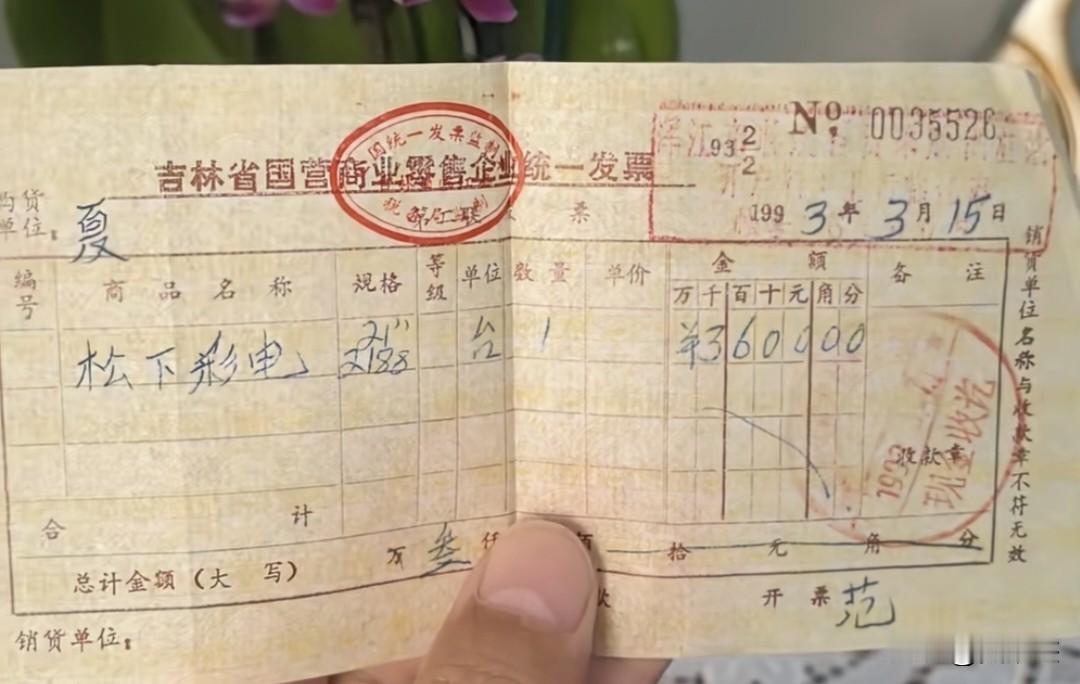 No. 0035526
93 2/2
吉林省国营商业零售企业统一发票
国统一发票监制
税
第二联
票
1993年3月15日
购货单位: 夏
编号 商品名称 规格 等级 单位 数量 单价 金额 备注
万 千 百 十 元 角 分
松下彩电 21" 2188 台 1 ¥360000
收款章
1993
合计
总计金额(大写) 万 叁 仟 拾 元 角 分
销货单位: 开票 范
销货单位名称与收款章不符无效